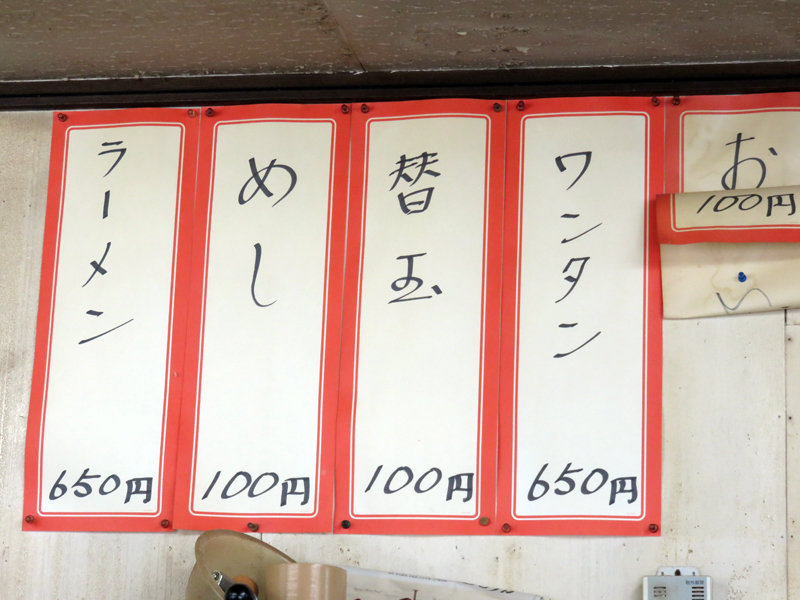 ラーメン
650円
めし
100円
替玉
100円
ワンタン
650円
お
100円